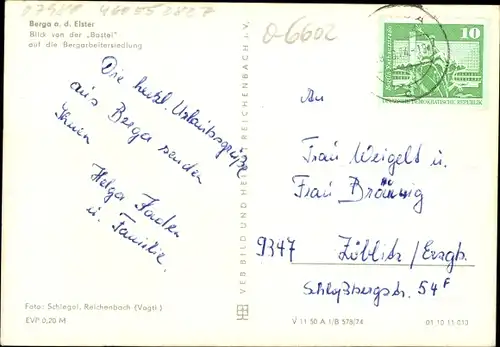 07981 46E55282F
Berga a. d. Elster
Blick von der "Bastei"
auf die Bergarbeitersiedlung
O-6602
10
DEUTSCHE DEMOKRATISCHE REPUBLIK
Die herzl. Urlaubsgrüße
aus Berga senden
Ihnen
Helga
u. Familie.
An
Frau Weigelt u.
Frau Bräunig
9347 Zöblitz/Erzgb.
Schloßbergstr. 54 F
VEB BILD UND HEIMAT REICHENBACH i. V.
Foto: Schlegel, Reichenbach (Vogtl.)
EVP 0,20 M
V 11 50 A 1/B 578/74
01 10 11 013